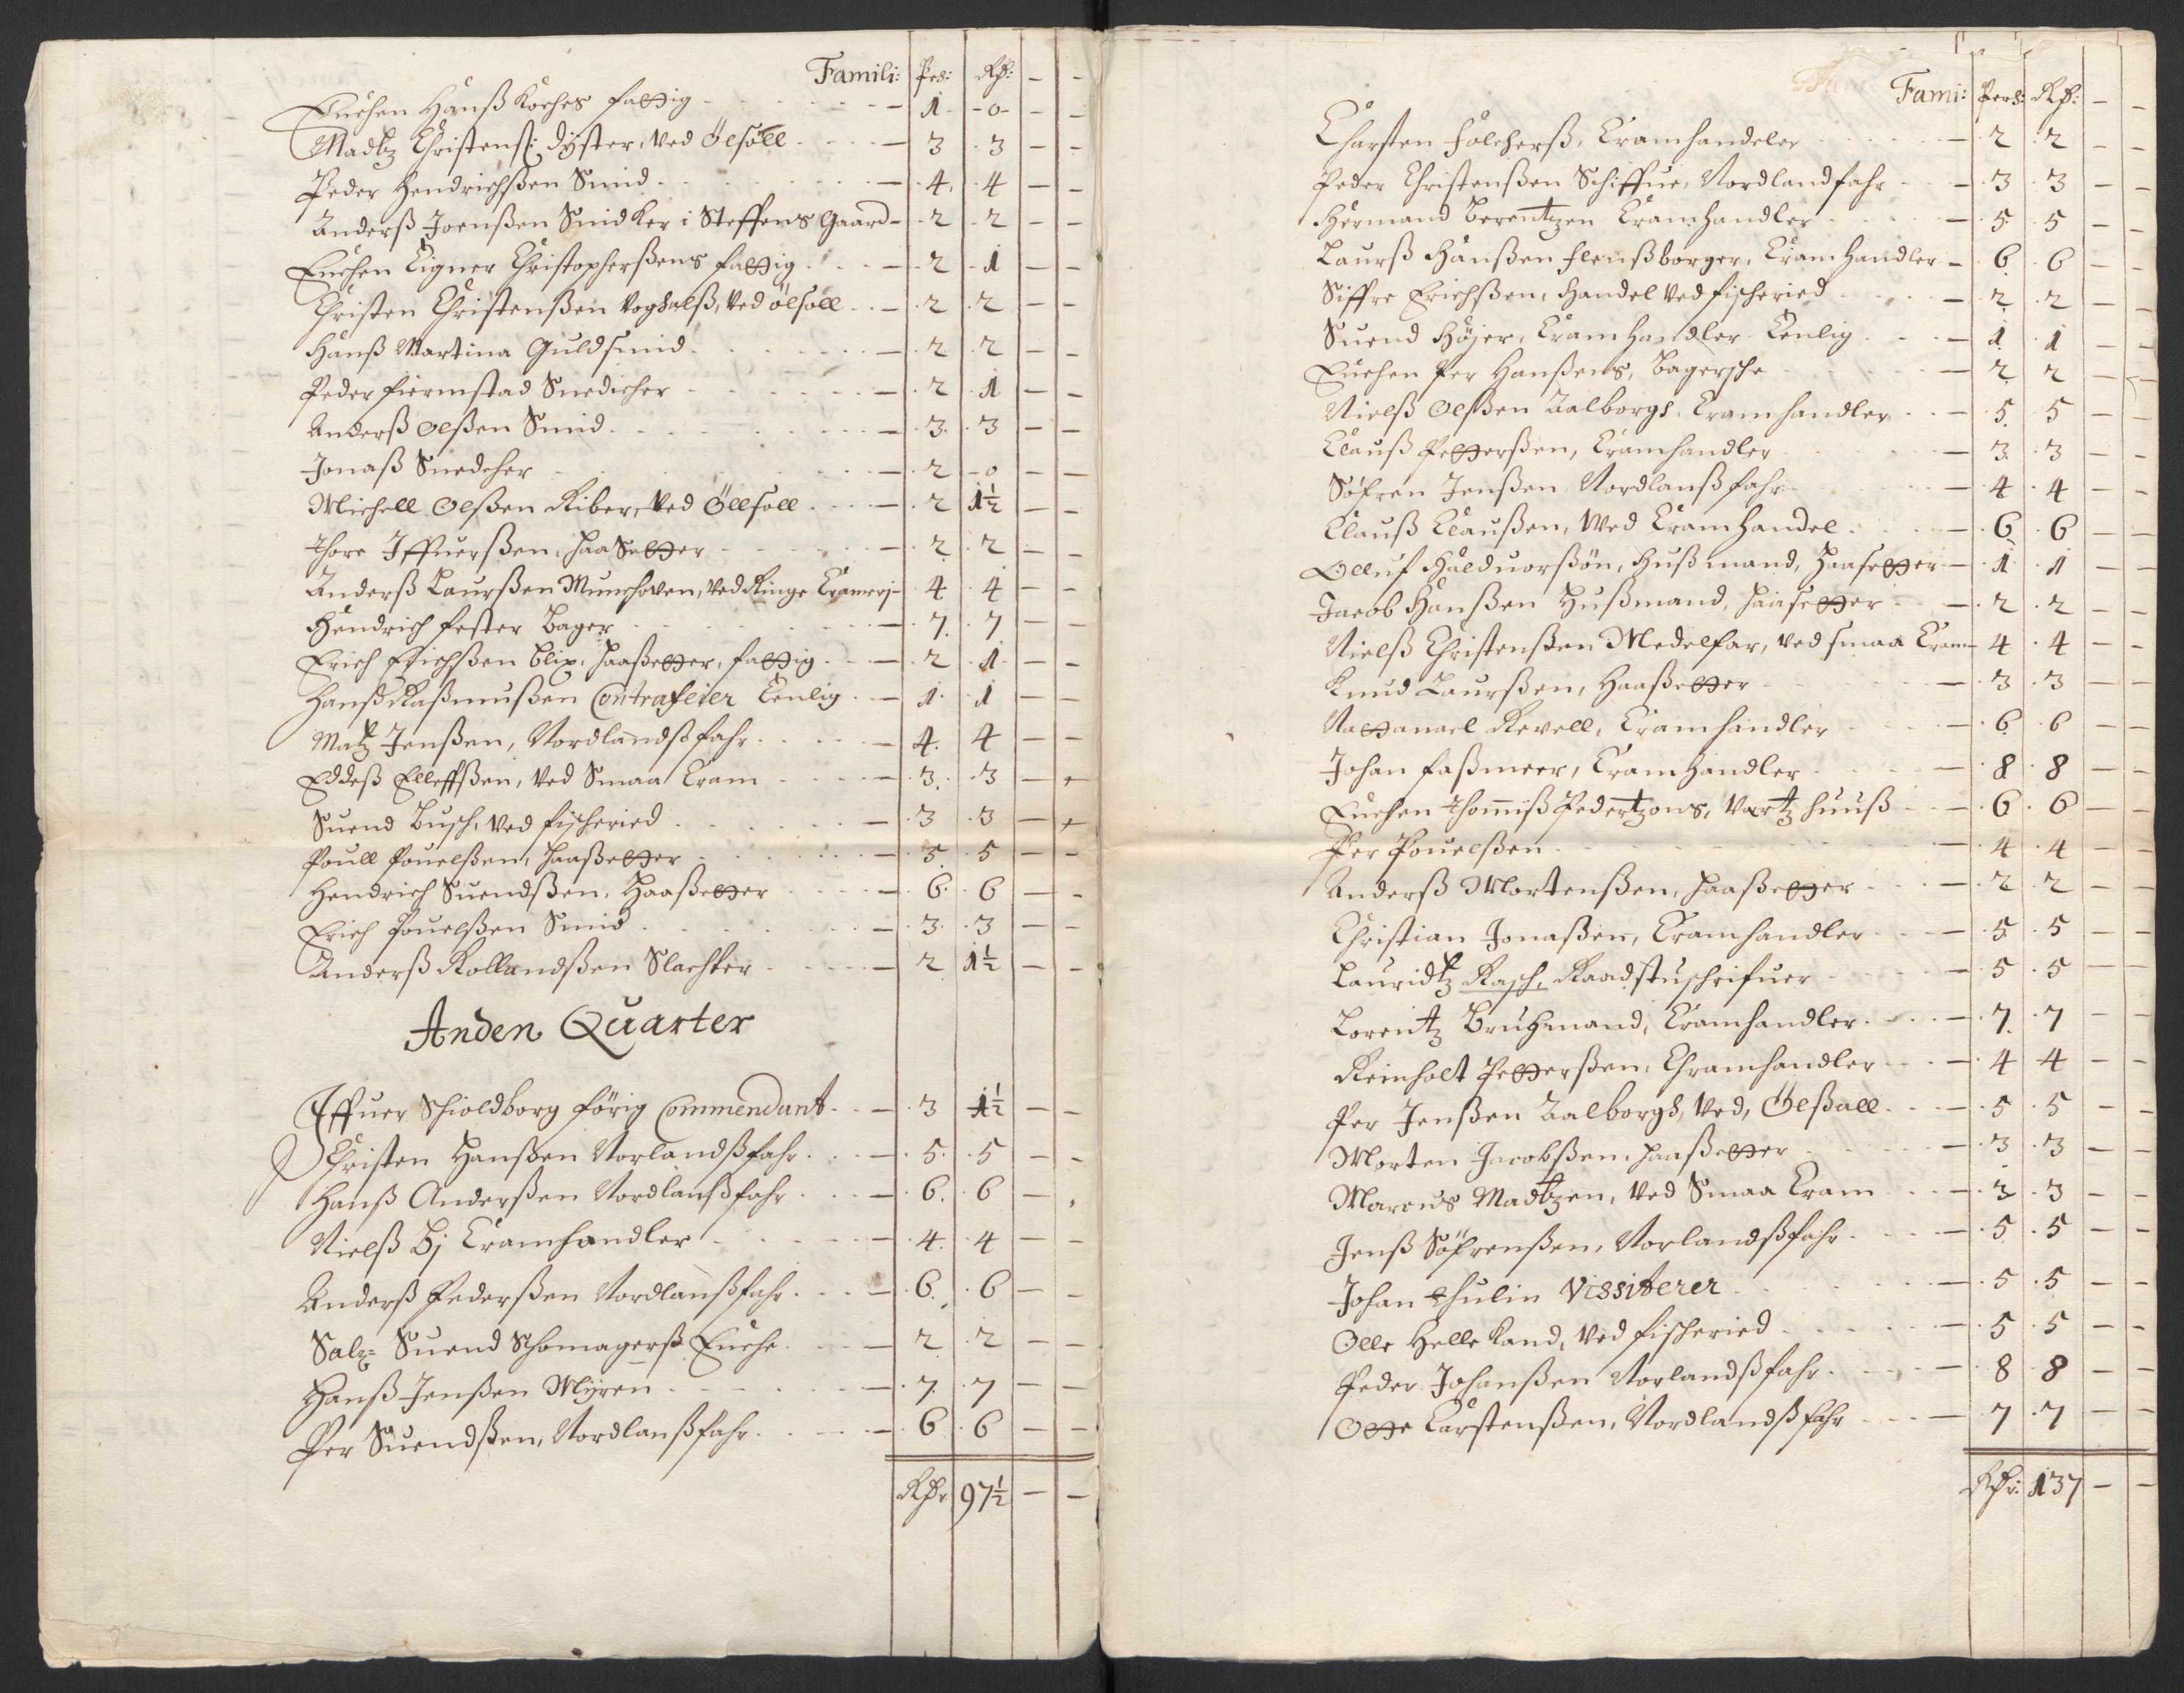 Famili: Pers: Rdr: - -
Enchen Hanß Koches fattig - 1 - 0 - -
Madtz Christenß: Dyster, Ved Ölsöll - 3 3 - -
Peder Hendrichßen Smid - 4 4 - -
Anderß Joenßen Smidker i Steffens Gaard - 2 2 - -
Enchen Eigner Christopherßens fattig - 2 1 - -
Christen Christenßen Voghalß, Ved ölsoll - 2 2 - -
Hanß Martina Guldsmid - 2 2 - -
Peder fiermstad Snedicher - 2 1 - -
Anderß Olßen Smid - 3 3 - -
Jonaß Snedcher - 2 - 0 - -
Michell Olßen Riber, Ved Öllsoll - 2 1½ - -
Thore Iffuerßen, Haasetter - 2 2 - -
Anderß Laurßen Munchoven, Ved Ringe Cramerj - 4 4 - -
Hendrich fester Bager - 7 7 - -
Erich Erichßen Blix, Haaßetter, fattig - 2 1 - -
Hanß Raßmußen Contrafeier Eenlig - 1 1 - -
Matz Jenßen, Nordlandßfahr - 4 4 - -
Eddeß Elleffßen, Ved Smaa Cram - 3 3 - -
Suend Busch, Ved fischeried - 3 3 - -
Poull Pouelßen, Haaßetter - 5 5 - -
Hendrich Suendßen, Haaßetter - 6 6 - -
Erich Pouelßen Smid - 3 3 - -
Anderß Rollandßen Slachter - 2 1½ - -
Anden Quarter
Iffuer Schioldborg förig Commendant - 3 1½ - -
Christen Hanßen Norlandßfahr - 5 5 - -
Hanß Anderßen Nordlanßfahr - 6 6 -
Nielß Bj Cramhandler - 4 4 - -
Anderß Pederßen Nordlanßfahr - 6 6 - -
Salx= Suend Schomagerß Enche - 2 2 - -
Hanß Jenßen Myren - 7 7 - -
Per Suendßen, Nordlanßfahr - 6 6 - -
Rdr 97½ - -
Fami: Pers: Rdr: - -
Charsten folcherß, Cramhandeler - 2 2 - -
Peder Christenßen Schiffue, Nordlandfahr - 3 3 - -
Hermand Berentzen Cramhandler - 5 5 - -
Laurß Hanßen flenßborger, Cramhandler - 6 6 - -
Siffre Erichßen, Handel Ved fischeried - 2 2 - -
Suend Höjer, Cramhandler Eenlig - 1 1 - -
Enchen Per Hanßens, Bagersche - 2 2 - -
Nielß Olßen Aalborgs Cramhandler - 5 5 - -
Clauß Petterßen, Cramhandler - 3 3 - -
Söfren Jenßen Nordlanßfahr - 4 4 - -
Clauß Claußen, Med Cramhandel - 6 6 - -
Olluf Halduorßön, Hußmand, Haasetter - 1 1 - -
Jacob Hanßen Hußmand, Haasetter - 2 2 - -
Nielß Christenßen Medelfar, Ved smaa Cram - 4 4 - -
Knud Laurßen, Haaßetter - 3 3 - -
Nattanael Revell, Cramhandler - 6 6 - -
Johan faßmeer, Cramhandler - 8 8 - -
Enchen Thomiß Pedertzons, Vertzhuuß - 6 6 - -
Per Pouelßen - 4 4 - -
Anderß Mortenßen, Haaßetter - 2 2 - -
Christian Jonaßen, Cramhandler - 5 5 - -
Lauridtz Rasch, Raadstuschrifuer - 5 5 - -
Lorentz Bruhmand, Cramhandler - 7 7 - -
Reinholt Petterßen, Chramhandler - 4 4 - -
Per Jenßen Aalborgs, Ved, Ölßall - 5 5 - -
Morten Jacobßen Haaßetter - 3 3 - -
Marcus Madtzen, Ved Smaa Cram - 3 3 - -
Jenß Söfrenßen, Norlandßfahr - 5 5 - -
Johan Thulin Vissiterer - 5 5 - -
Olle Helle Kand, Ved fischeried - 5 5 - -
Peder Johanßen Norlandßfahr - 8 8 - -
Otte Carstenßen, Nordlandßfahr - 7 7 - -
Rdr: 137 - -